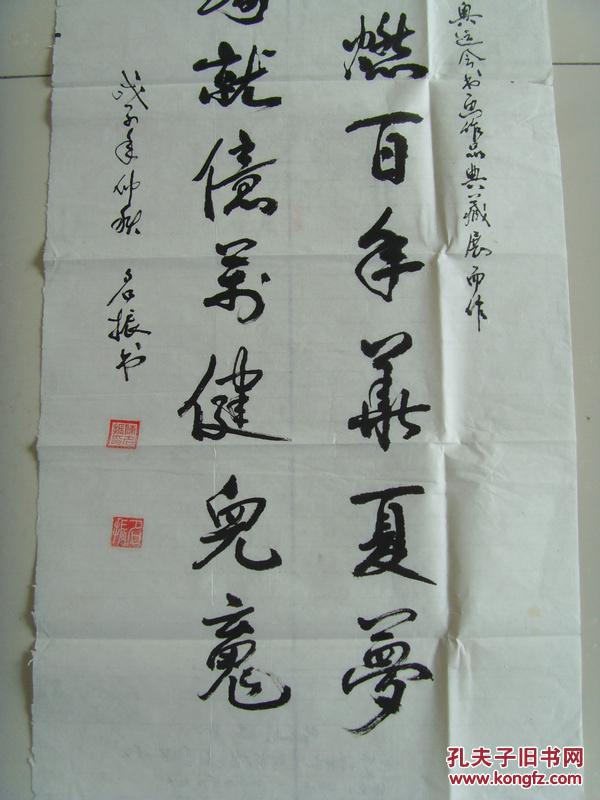 奥运会书画作品典藏展而作
燃百年华夏夢
就億萬健兒魂
戊子年仲秋 名振书
孔夫子旧书网
www.kongfz.com